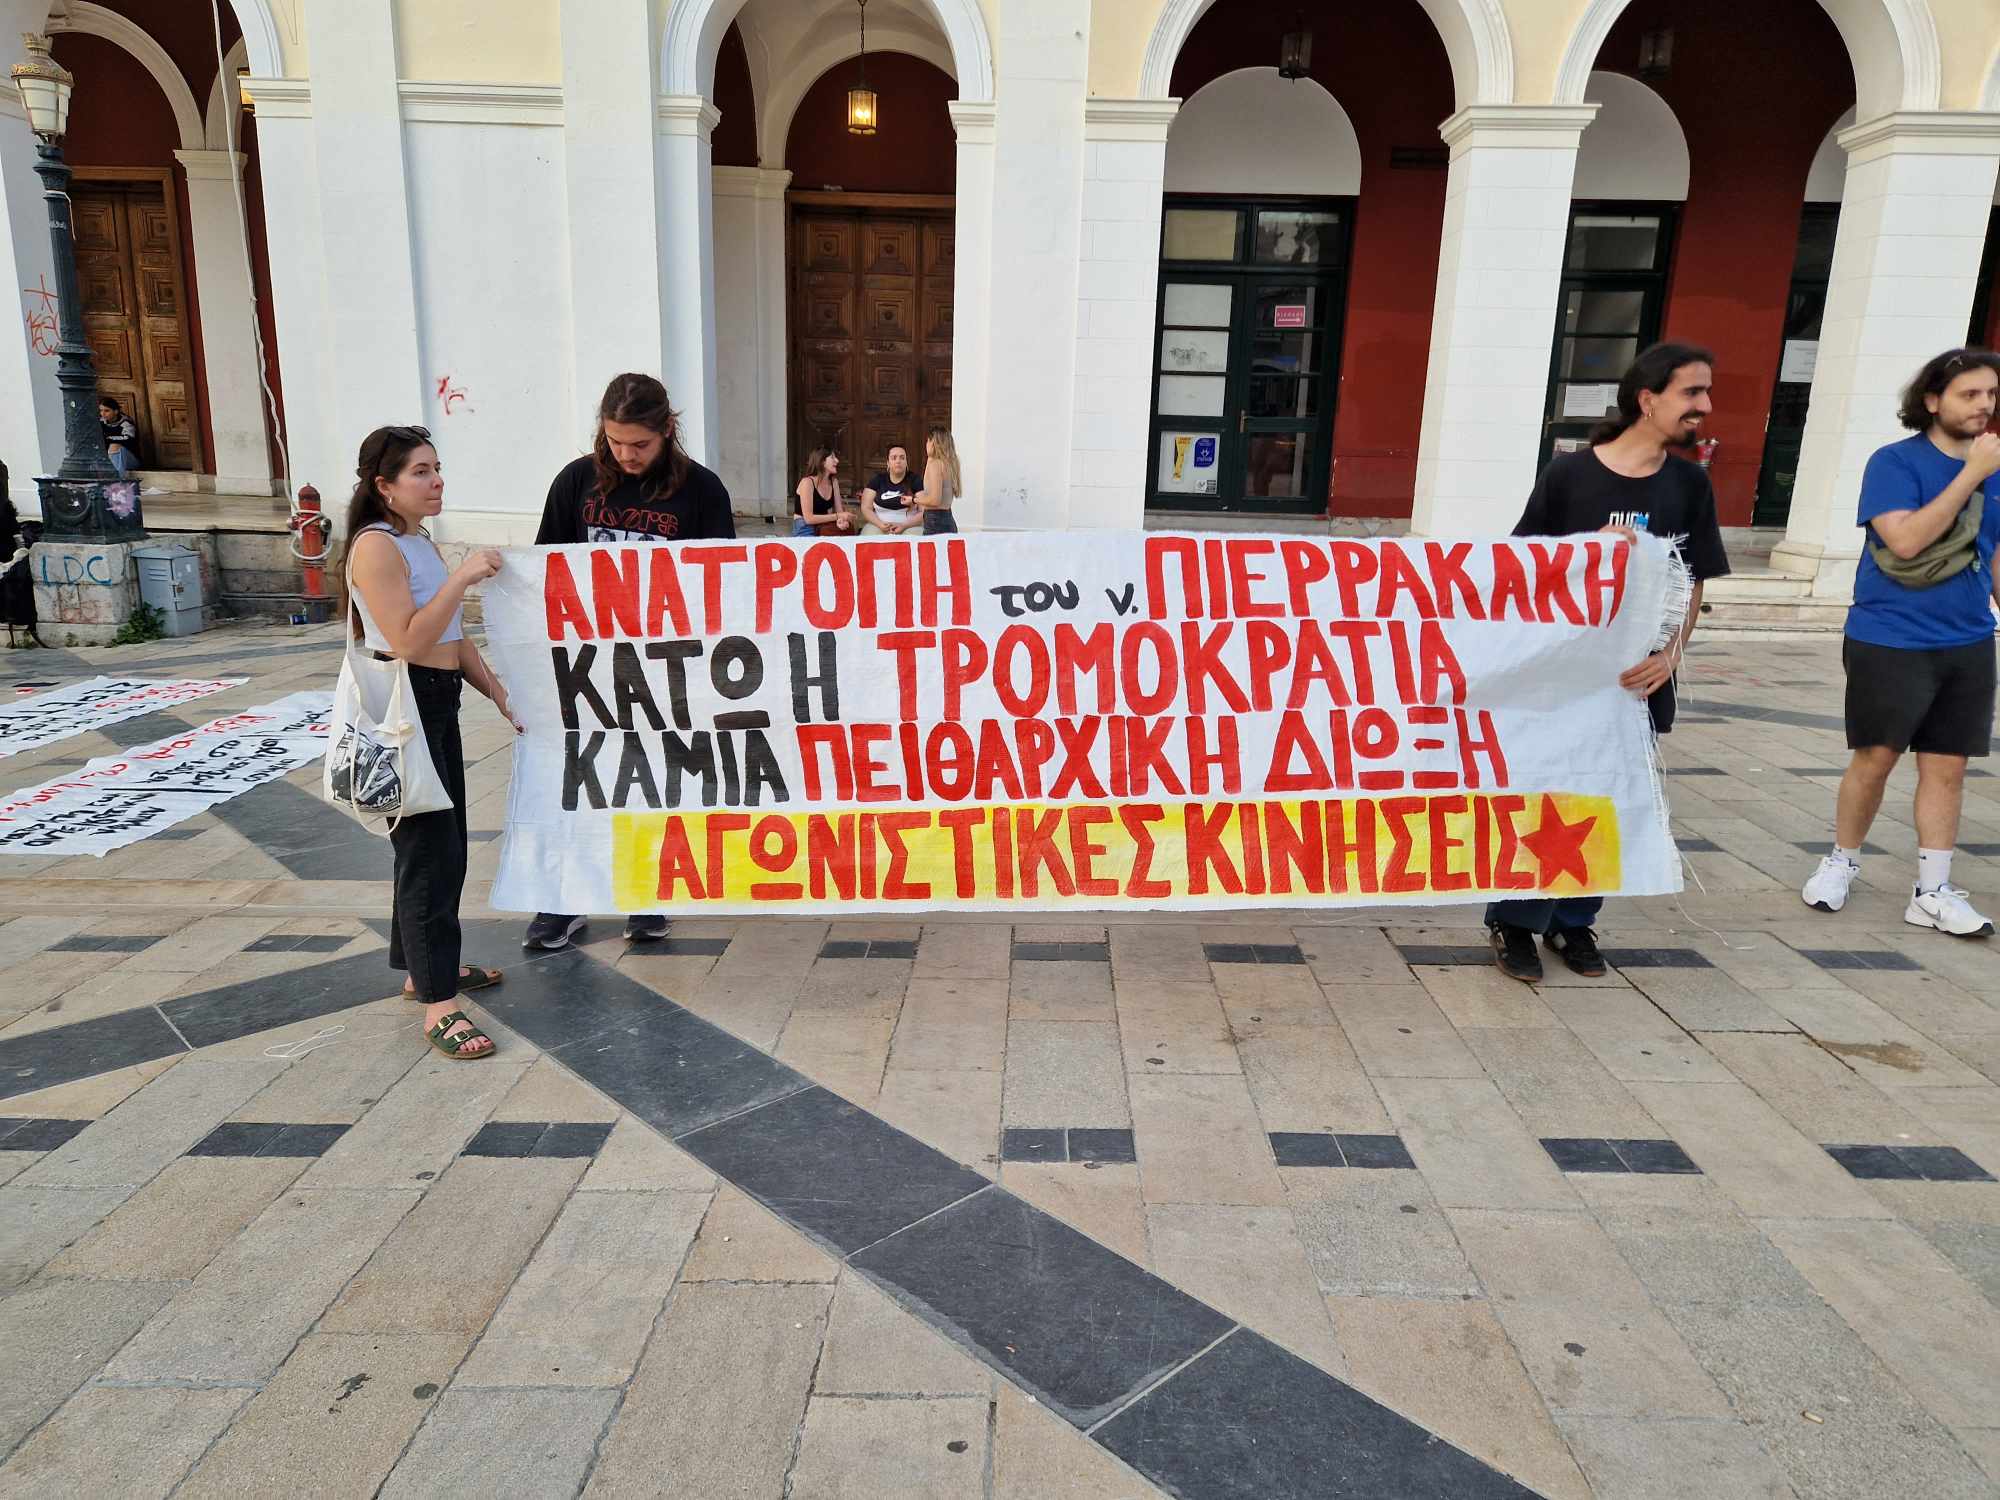 ΑΝΑΤΡΟΠΗ του ν. ΠΙΕΡΡΑΚΑΚΗ
ΚΑΤΩ Η ΤΡΟΜΟΚΡΑΤΙΑ
ΚΑΜΙΑ ΠΕΙΘΑΡΧΙΚΗ ΔΙΩΞΗ
ΑΓΩΝΙΣΤΙΚΕΣ ΚΙΝΗΣΕΙΣ
LDC